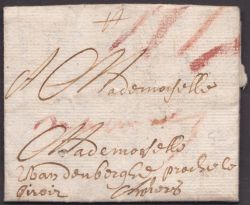 A Mademoiselle
Mademoiselle
Vandenberghe proche le
Anvers